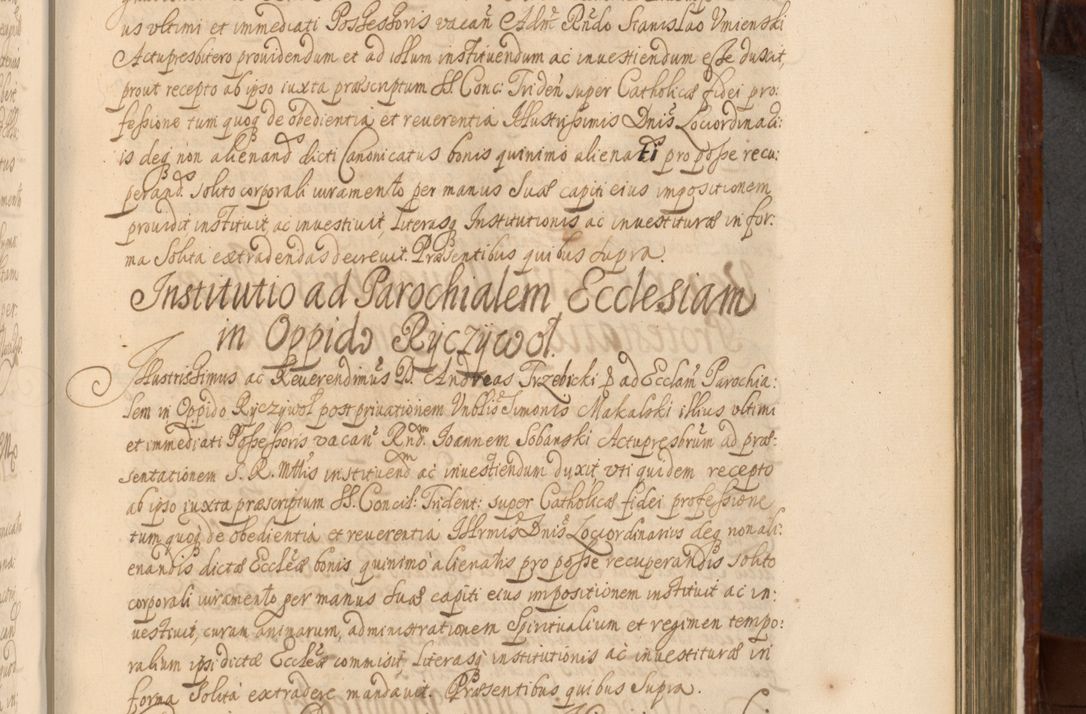 us ultimi et immediati Possessoris vacan̄ Adm̄ Rn̄do Stanislao Umienski
Actupresbitero prouidendum et ad illum instituendum ac inuestiendum esse duxit,
prout recepto ab ipso iuxta præscriptum SS. Conc: Triden̄ super Catholicæ fidei pro:
fessione tum quoq de obedientia et reuerentia Illustrissimis Dnis Lociordinali:
is deq non alienand dicti Canonicatus bonis quinimo alienati pro posse recu:
perand. solito corporali iuramento per manus suæ capiti eius impositionem
prouidit instituit ac inuestiuit, Literasq Institutionis ac inuestituræ in for:
ma Solita extradendas decreuit. Præsentibus quibus supra.
Institutio ad Parochialem Ecclesiam
in Oppido Ryczywoł.
Illustrissimus ac Reuerendimus D. Andreas Trzebicki ad Ecclam Parochia:
lem in Oppido Ryczywoł post priuationem Vnblis Simonis Makalski illius ultimi
et immediati Possessoris vacan̄ Rndm Ioannem Sobanski Actupresbrum ad præ:
sentationem S. R. Mttis instituend ac inuestiendum duxit uti quidem recepto
ab ipso iuxta præscriptum SS. Concil: Trident: super Catholicæ fidei professione
tum quoq de obedientia et reuerentia Illrmis Dnis Lociordinarius deq non ali:
enandis dictæ Ecclæ bonis quinimo alienatis pro posse recuperandis solito
corporali iuramento per manus suas capiti eius impositionem instituit ac in:
uestiuit, curam animarum, administrationem Spiritualium et regimen tempo:
ralium ipsi dictæ Ecclæ commisit, Literasq institutionis ac inuestituræ in
forma Solita extradere mandauit. Præsentibus quibus Supra.